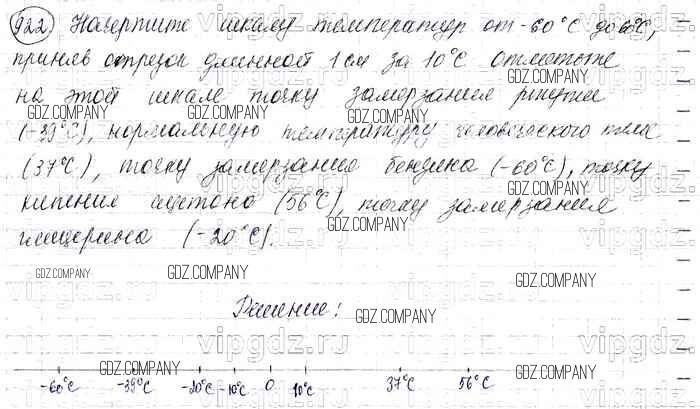 922 Начертите шкалу температур от -60°C до 60°C,
приняв отрезок длинной 1 см за 10°C. Отметьте
на этой шкале точку замерзания ртути
(-39°C), нормальную температуру человеческого тела
(37°C), точку замерзания бензина (-60°C), точку
кипения ацетона (56°C), точку замерзания
глицерина (-20°C).
Решение:
-60°C -39°C -20°C -10°C 0 10°C 37°C 56°C
GDZ.COMPANY
GDZ.COMPANY
GDZ.COMPANY
GDZ.COMPANY
GDZ.COMPANY
GDZ.COMPANY
GDZ.COMPANY
GDZ.COMPANY
GDZ.COMPANY
GDZ.COMPANY
GDZ.COMPANY
GDZ.COMPANY
GDZ.COMPANY
vipgdz.ru
vipgdz.ru
vipgdz.ru